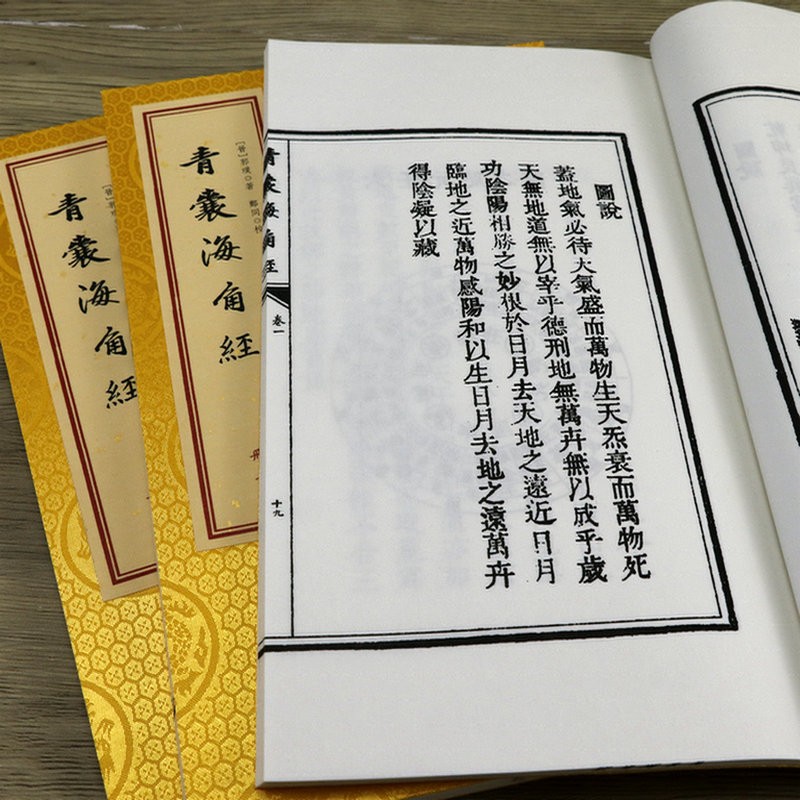 圖說
蓋地氣必待天氣盛而萬物生天炁衰而萬物死
天無地道無以宰乎德刑地無萬卉無以成乎歲
功陰陽相勝之妙很於日月去天地之遠近日月
臨地之近萬物感陽和以生日月去地之遠萬卉
得陰凝以藏
青囊海角經
卷一
十九
[晉]郭璞◎著 鄭同◎校
青囊海角經
[晉]郭
青囊海角經